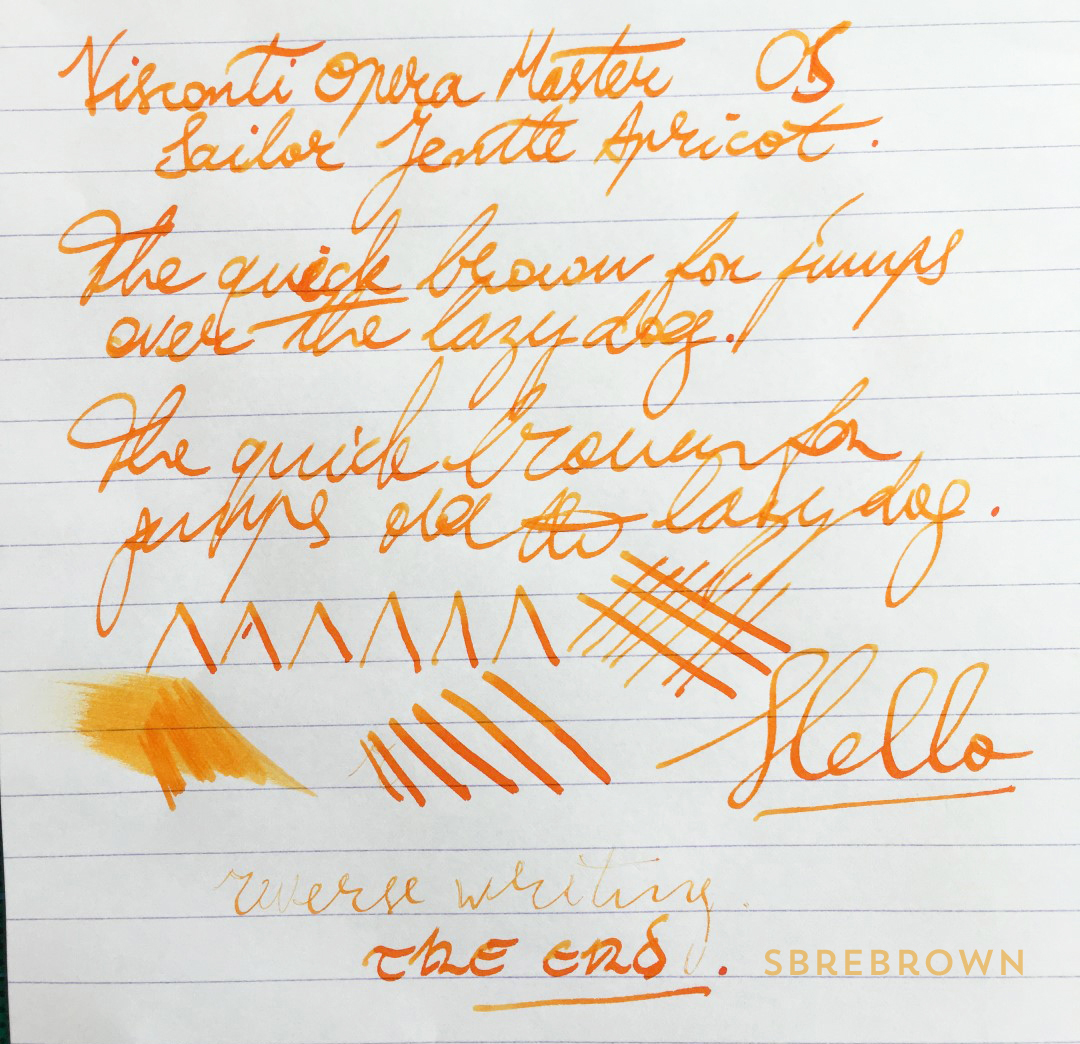 Visconti Opera Master OS
Sailor Jentle Apricot.
The quick brown fox jumps
over the lazy dog.
The quick brown fox
jumps lazy dog.
Hello
reverse writing.
THE END.
SBREBROWN